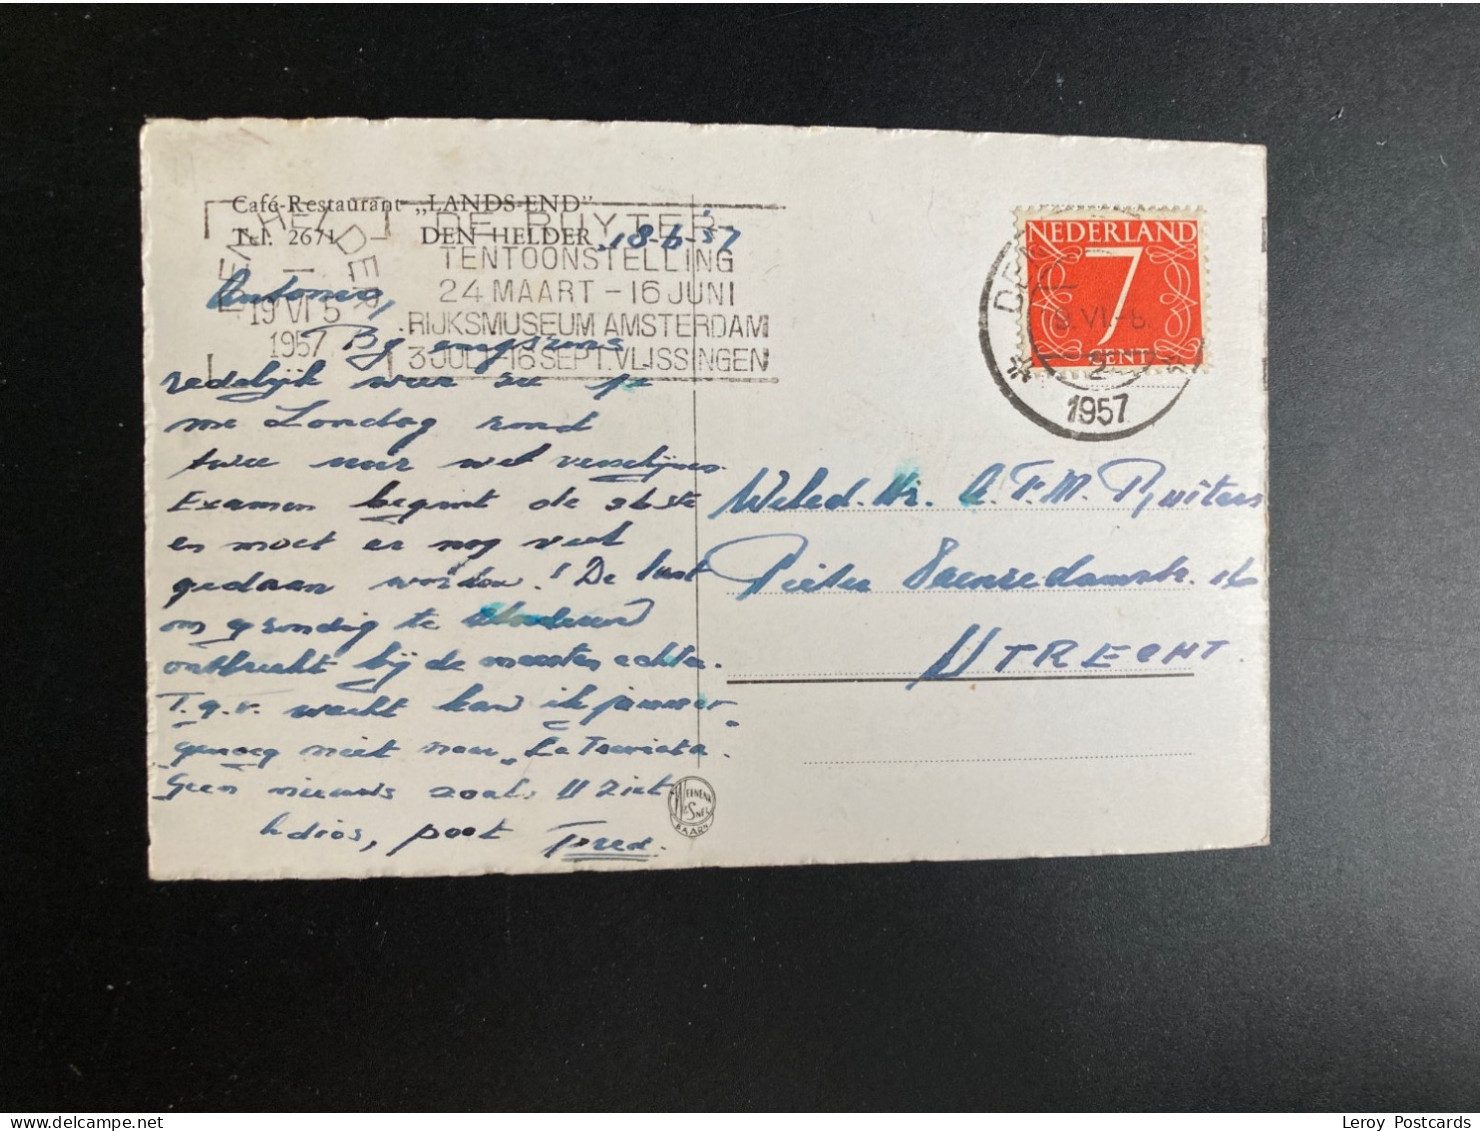 Café-Restaurant „LANDS-END"
Tel. 2671 DEN HELDER 18-6-'57
DEN HELDER
19 VI 5
1957
DE RUYTER-
TENTOONSTELLING
24 MAART - 16 JUNI
RIJKSMUSEUM AMSTERDAM
3 JULI-16 SEPT. VLISSINGEN
NEDERLAND
7
CENT
1957
Antonius,
By
redelijk weer zie je
me Zondag rond
twee uur wel verschijnen.
Examen begint de 26ste
en moet er nog veel
gedaan worden! De lust
om grondig te studeeren
ontbreekt bij de meesten echter.
T.g.v. wacht kan ik jammer
genoeg niet naar „La Traviata.
Geen nieuws zoals U ziet.
Adios, poot Fred.
Weled. Hr. A. F. M. Ruiters
Pieter Saenredamstr. 16
UTRECHT
WEENENK
& SNEL
BAARN
Leroy Postcards